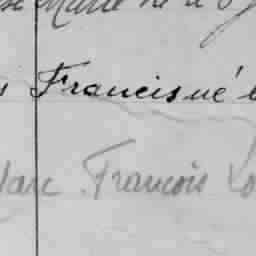 Marie né le
Francis né
Marc François